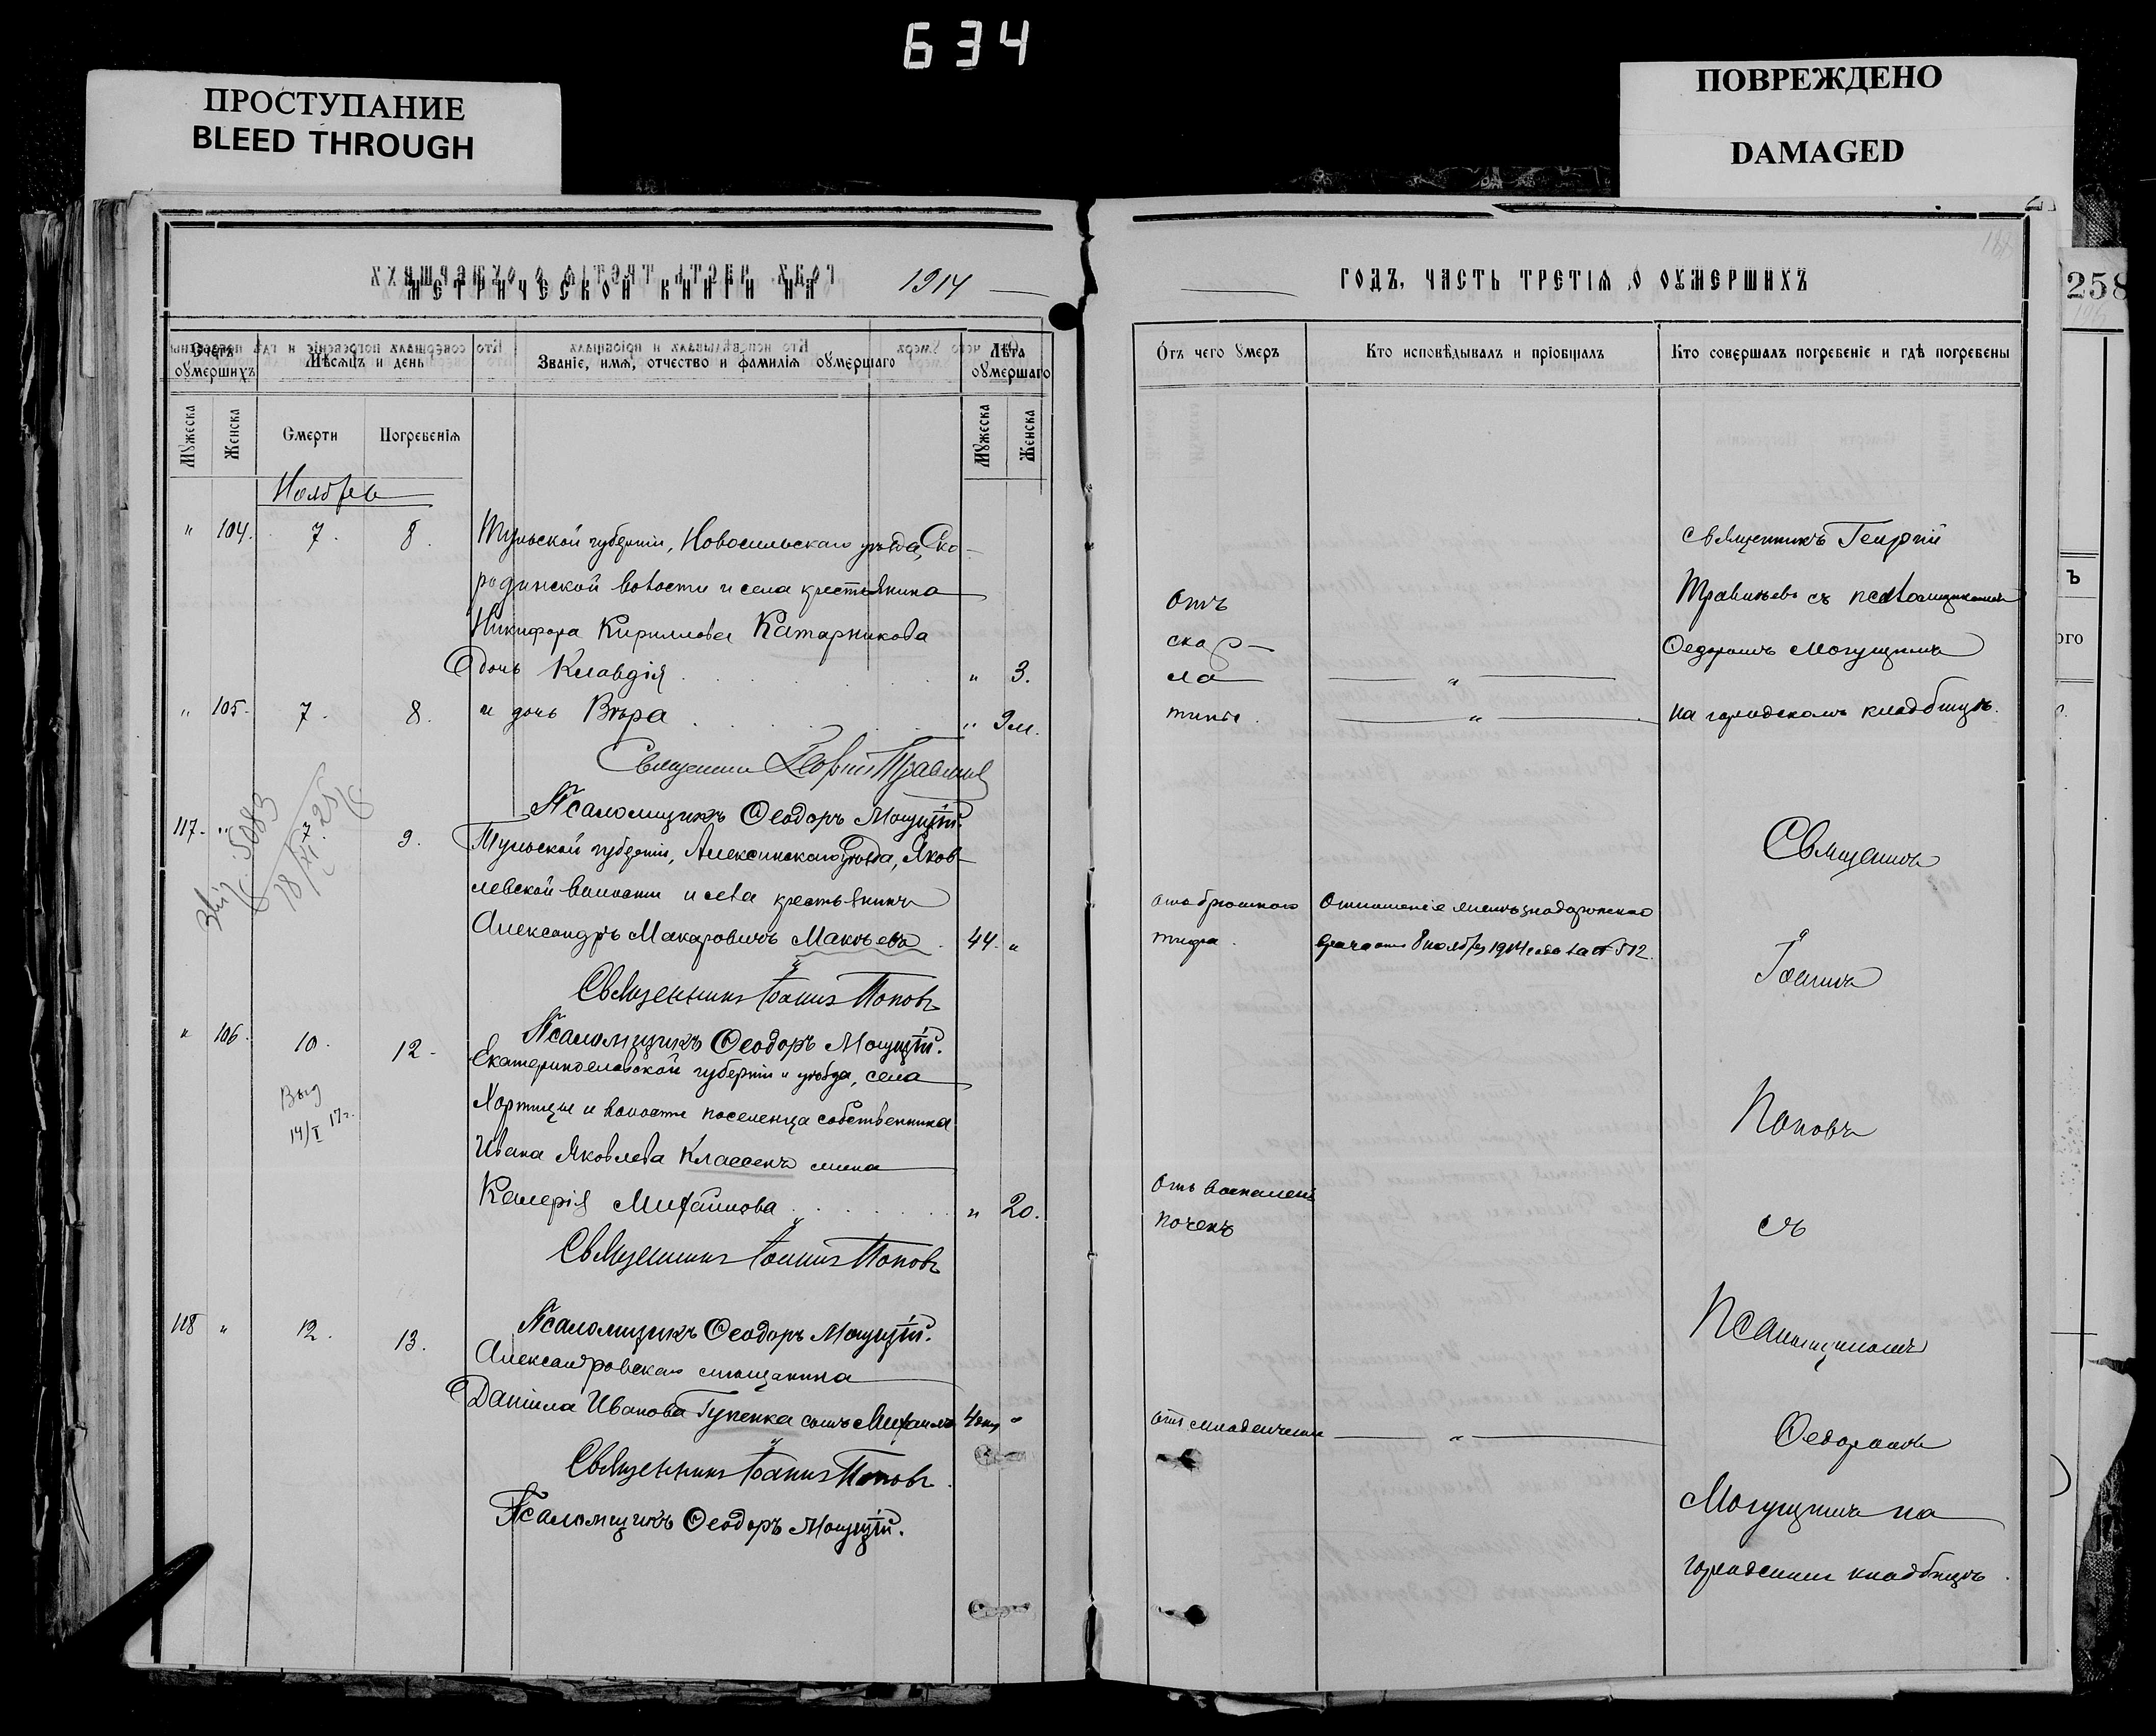 634
ПРОСТУПАНИЕ
BLEED THROUGH
ПОВРЕЖДЕНО
DAMAGED
МЕТРИЧЕСКОЙ КНИГИ НА 1914
Счетъ оумершихъ
Мѣсяцъ и день
Званіе, имя, отчество и фамилія оумершаго
Лѣта оумершаго
Мужеска
Женска
Смерти
Погребенія
Мужеска
Женска
Ноябрь
" 104. 7. 8. Тульской губерніи, Новосильскаго уѣзда, Ско-
родинской волости и села крестьянина
Никифора Кириллова Катарникова
дочь Клавдія " 3.
" 105. 7. 8. и дочь Вѣра " 9 м.
Священникъ Георгій Травинъ
Псаломщикъ Ѳеодоръ Могущій.
117. " 7 9. Тульской губерніи, Алексинскаго уѣзда, Яков-
5083
18/XI 25
левской волости и села крестьянинъ
Александръ Макаровичъ Макѣевъ 44. "
Священникъ Іоаннъ Поповъ
Псаломщикъ Ѳеодоръ Могущій.
" 106. 10. 12. Екатеринославской губерніи и уѣзда, села
Выд
14/I 17 г.
Хортицы и волости поселенца собственника
Ивана Яковлева Классенъ жена
Калерія Михайлова " 20.
Священникъ Іоаннъ Поповъ
Псаломщикъ Ѳеодоръ Могущій.
118 " 12. 13. Александровскаго мѣщанина
Даніила Иванова Гупенка сынъ Михаилъ 4 дня "
Священникъ Іоаннъ Поповъ.
Псаломщикъ Ѳеодоръ Могущій.
ГОДЪ, ЧАСТЬ ТРЕТІЯ О ОУМЕРШИХЪ
258
Отъ чего умеръ
Кто исповѣдывалъ и пріобщалъ
Кто совершалъ погребеніе и гдѣ погребены
Священникъ Георгій
Отъ
скар-
ла
тины.
"
"
Травинъ съ псаломщикомъ
Ѳедоромъ Могущимъ
на городскомъ кладбищѣ.
отъ брюшного
тифа.
Отношеніе желѣзнодорожнаго
врача отъ 8 ноября 1914 года за № 512.
Священникъ
Іоаннъ
Поповъ
съ
псаломщикомъ
Ѳедоромъ
Могущимъ на
городскомъ кладбищѣ.
Отъ воспаленія
почекъ
отъ младенческой
"
Ъ
ого